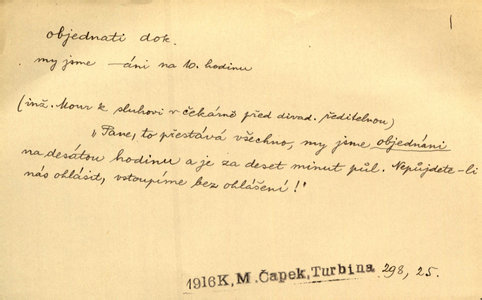 1
objednati dok.
my jsme —áni na 10. hodinu
(inž. Mour k sluhovi v čekárně před divad. ředitelnou)
„Pane, to přestává všechno, my jsme objednáni
na desátou hodinu a je za deset minut půl. Nepůjdete-li
nás ohlásit, vstoupíme bez ohlášení!"
1916 K. M. Čapek, Turbina 298, 25.